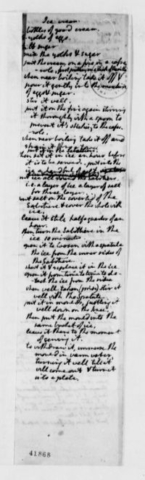 Ice cream.
2 bottles of good cream
6 yolks of eggs.
1/2 lb sugar
mix the yolks & sugar
put the cream on a fire in a casse-
role, first putting in a stick of
when near boiling take it off &
pour it gently into the mixture
of eggs & sugar.
stir it well.
put it on the fire again stirring
it thoroughly with a spoon to
prevent it's sticking to the casse-
role.
when near boiling take it off and
then set it in ice an hour before
it is to be served.
ice a layer of ice a layer of salt
for three layers.
put salt on the coverlid of the
Sabotiere & cover the whole with
ice.
leave it still half a quarter of an
hour.
then turn the Sabottiere in the
ice 10 minutes
open it to loosen with a spatula
the ice from the inner sides of
the Sabotiere.
shut it & replace it in the ice
open it from time to time to de-
tach the ice from the sides
when well taken (prise) stir it
well with the Spatula.
put it in moulds, justling it
well down on the knee.
then put the mould into the
same bucket of ice.
leave it there to the moment
of serving it.
to withdraw it, immerse the
mould in warm water,
turning it well till it
will come out & turn it
into a plate.
41868